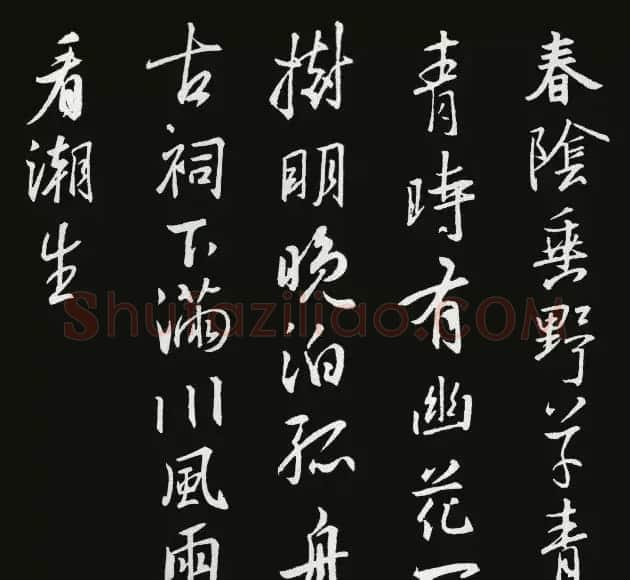 春陰垂野草青
青時有幽花一
樹明晚泊孤舟
古祠下滿川風雨
看潮生
Shufaziliao.COM